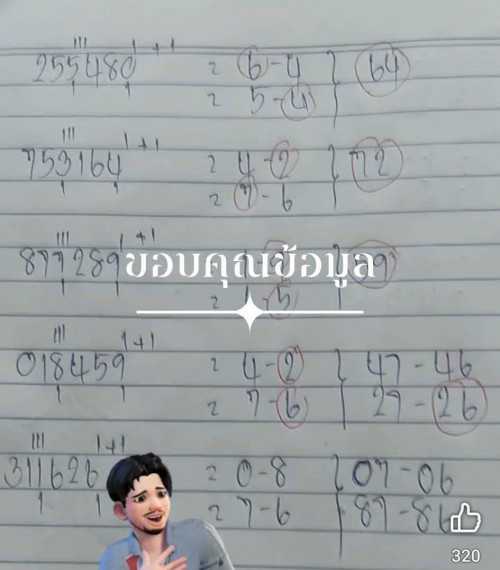 255480 1+1 = 6-4 } 64
= 5-4
753164 1+1 = 4-2 } 72
= 7-6
877289 +1
ขอบคุณข้อมูล
= 5
018459 1+1 = 4-2 } 47-46
= 7-6 27-26
311626 1+1 = 0-8 } 07-06
= 7-6 87-86
320